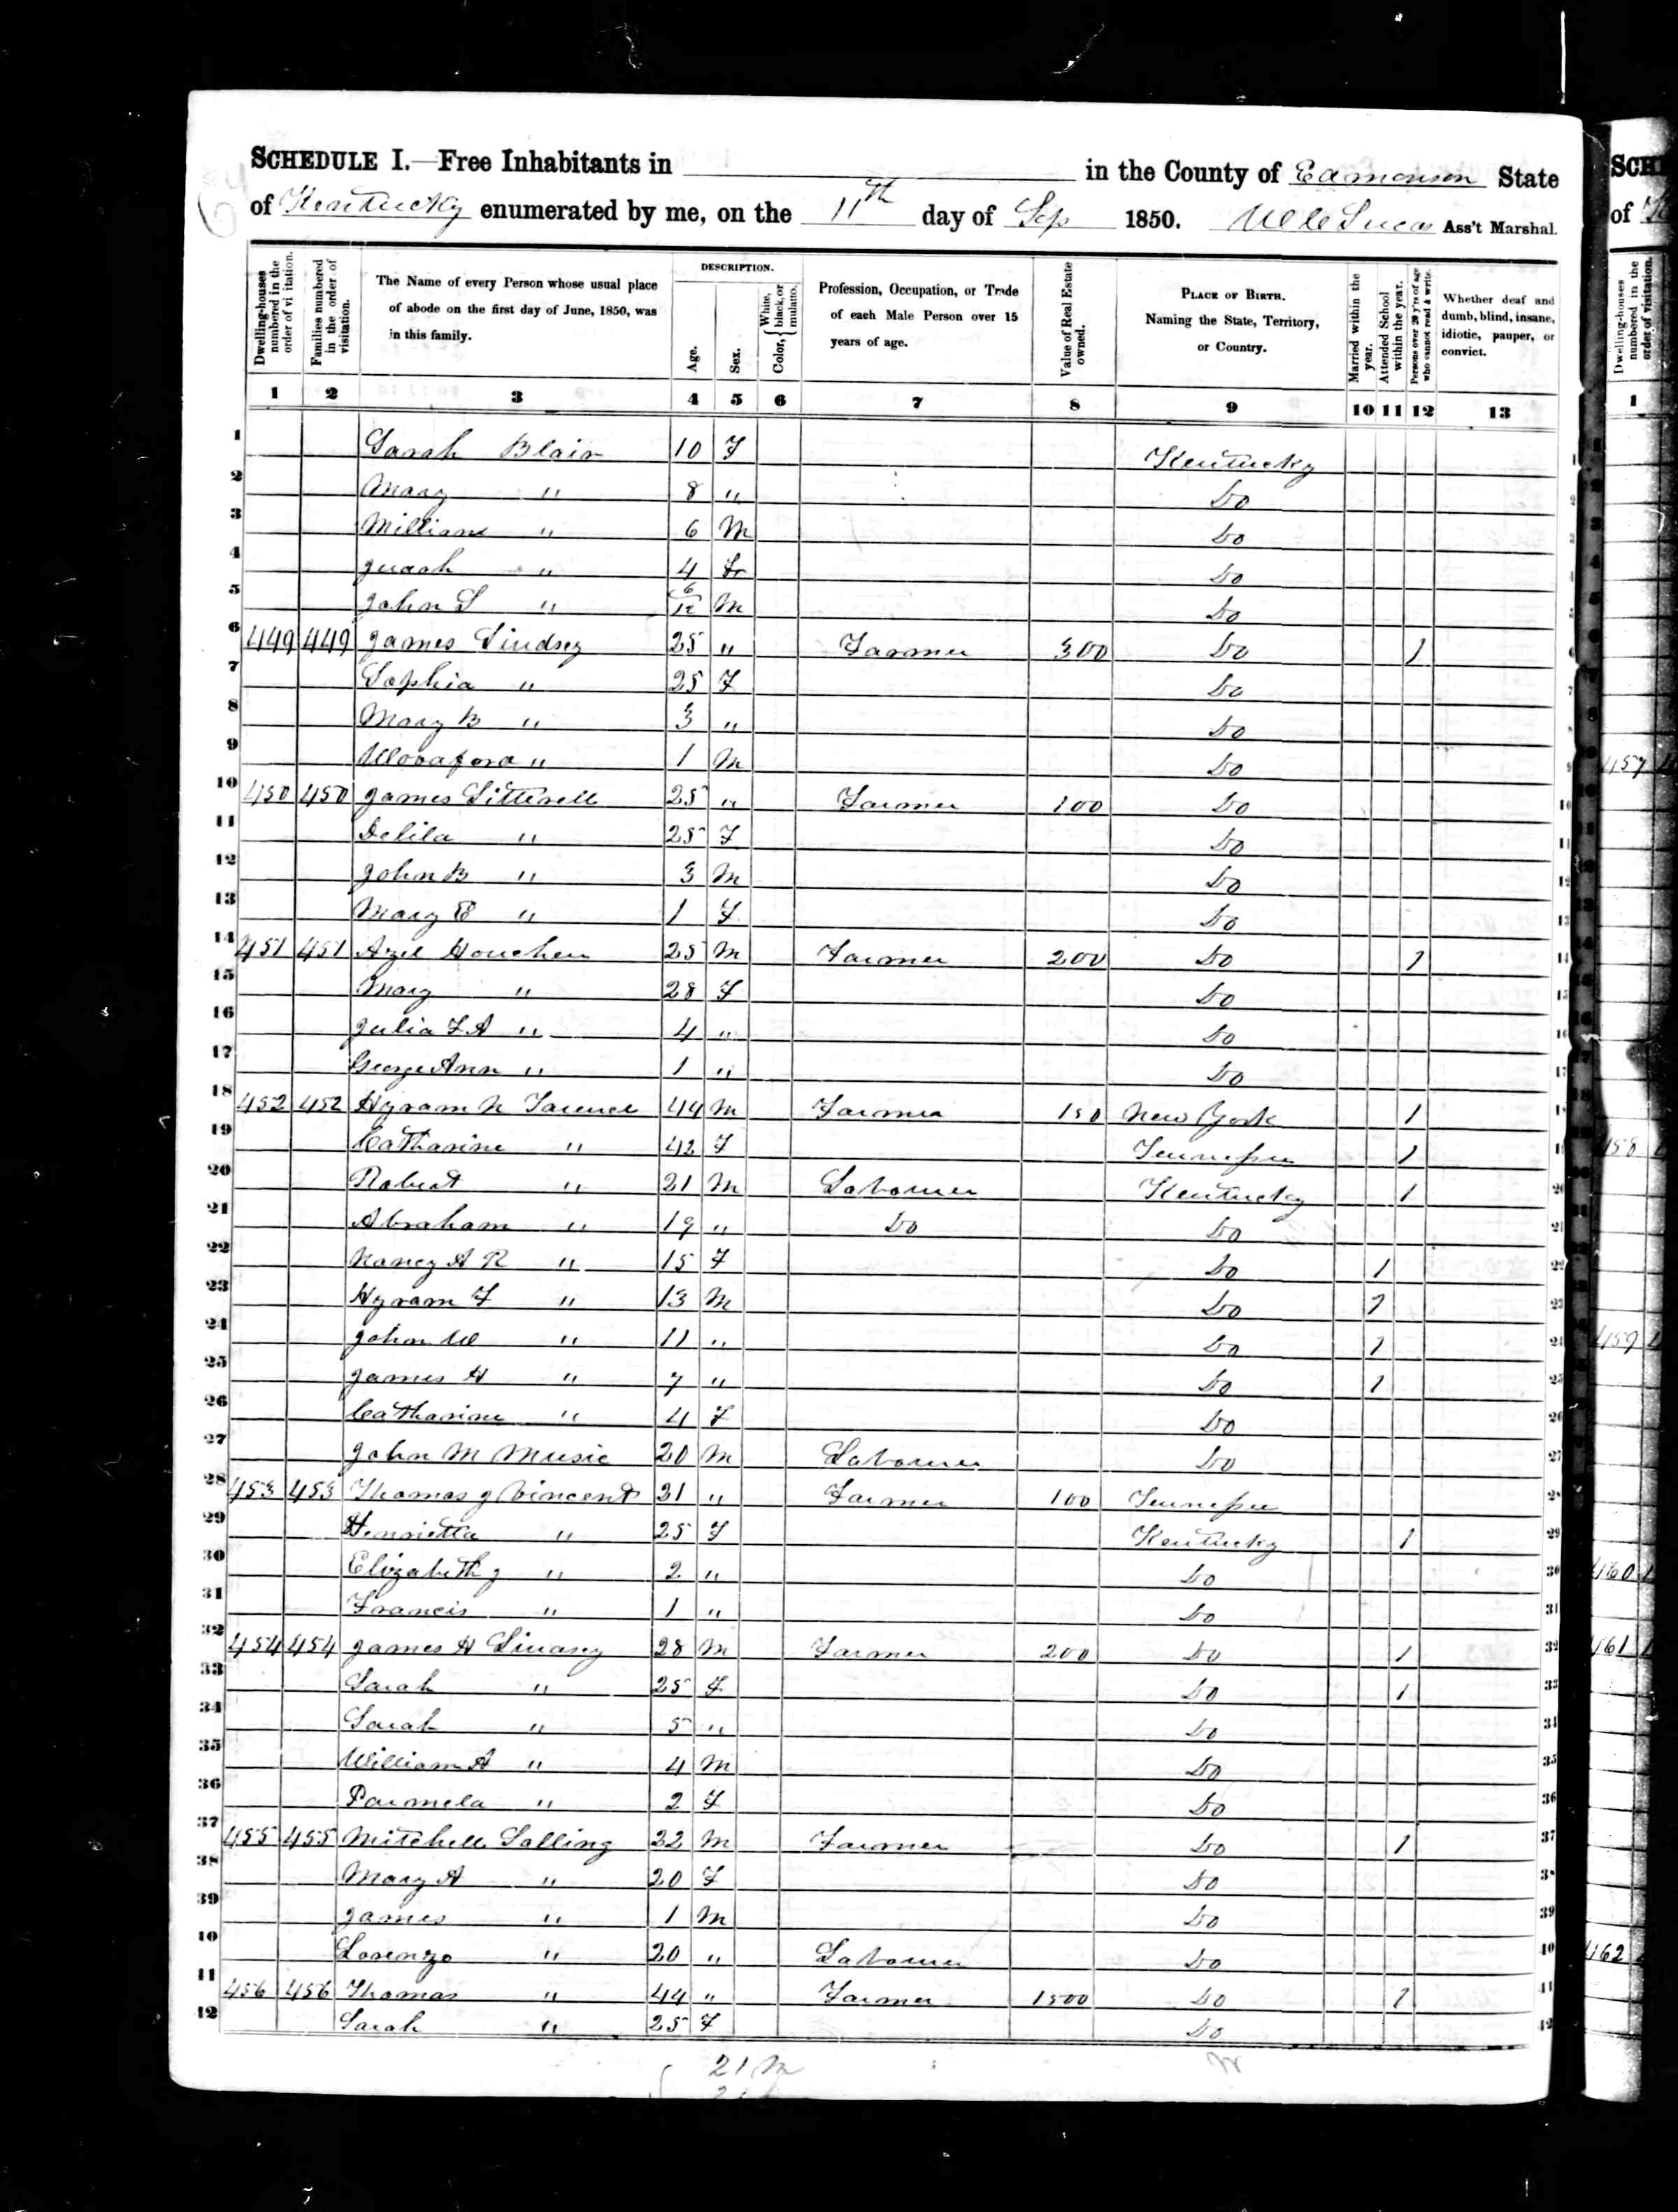 SCHEDULE I.—Free Inhabitants in in the County of Edmonson State
of Kentucky enumerated by me, on the 11th day of Sep 1850. Ass't Marshal.
Dwelling-houses numbered in the order of vi itation.
Families numbered in the order of visitation.
The Name of every Person whose usual place of abode on the first day of June, 1850, was in this family.
DESCRIPTION.
Age.
Sex.
Color, { White, black, or mulatto.
Profession, Occupation, or Trade of each Male Person over 15 years of age.
Value of Real Estate owned.
PLACE OF BIRTH. Naming the State, Territory, or Country.
Married within the year.
Attended School within the year.
Persons over 20 y'rs of age who cannot read & write.
Whether deaf and dumb, blind, insane, idiotic, pauper, or convict.
1 2 3 4 5 6 7 8 9 10 11 12 13
1 Sarah Blair 10 F Kentucky
2 Mary " 8 " Do
3 William " 6 M Do
4 Judah " 4 F Do
5 John S " 6/12 M Do
6 449 449 James Lindsey 25 " Farmer 300 Do 1
7 Sophia " 25 F Do
8 Mary B " 3 " Do
9 " 1 M Do
10 450 450 James Litterell 25 " Farmer 100 Do
11 Delila " 25 F Do
12 John B " 3 M Do
13 Mary E " 1 F Do
14 451 451 Azel Houchen 25 M Farmer 200 Do 1
15 Mary " 28 F Do
16 Julia F A " 4 " Do
17 George Ann " 1 " Do
18 452 452 Hyram N 44 M Farmer 150 New York 1
19 Catharine " 42 F Tennessee 1
20 Robert " 21 M Labourer Kentucky 1
21 Abraham " 19 " Do Do
22 Nancy A R " 15 F Do 1
23 Hyram F " 13 M Do 1
24 John W " 11 " Do 1
25 James H " 7 " Do 1
26 Catharine " 4 F Do
27 John M Music 20 M Labourer Do
28 453 453 Thomas J Vincent 31 " Farmer 100 Tennessee
29 Henrietta " 25 F Kentucky 1
30 Elizabeth J " 2 " Do
31 Francis " 1 " Do
32 454 454 James H Lindsey 28 M Farmer 200 Do 1
33 Sarah " 25 F Do 1
34 Sarah " 5 " Do
35 William A " 4 M Do
36 Parmela " 2 F Do
37 455 455 Mitchell Salling 32 M Farmer Do 1
38 Mary A " 20 F Do
39 James " 1 M Do
40 Lorenzo " 20 " Labourer Do
41 456 456 Thomas " 44 " Farmer 1500 Do 1
42 Sarah " 25 F Do
21 M
SCH
of
Dwelling-houses numbered in the order of visitation.
1
457
458
459
460
461
462